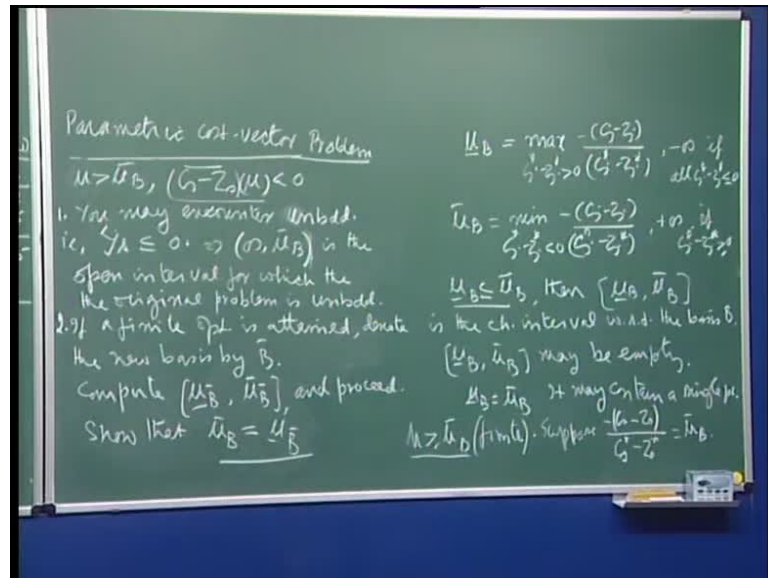 Parametric cost-vector Problem
μ > μ̄_B, (C_s - Z_s)(μ) < 0
1. You may encounter unbdd.
ie, Y_s ≤ 0. ⇒ (∞, μ̄_B) is the
open interval for which the
the original problem is unbdd.
2. If a finite opt is attained, denote
the new basis by B̄.
Compute [μ̲_B̄, μ̄_B̄], and proceed.
Show that μ̄_B = μ̲_B̄
μ̲_B = max -(C_j - Z_j) / (C_j* - Z_j*), -∞ if
C_j* - Z_j* > 0 all C_j* - Z_j* ≤ 0
μ̄_B = min -(C_j - Z_j) / (C_j* - Z_j*), +∞ if
C_j* - Z_j* < 0 C_j* - Z_j* ≥ 0
μ̲_B ≤ μ̄_B, then [μ̲_B, μ̄_B]
is the ch. interval w.r.t. the basis B.
[μ̲_B, μ̄_B] may be empty.
μ̲_B = μ̄_B it may contain a single pt.
μ ≥ μ̄_B (finite). Suppose -(C_s - Z_s) / (C_s* - Z_s*) = μ̄_B.